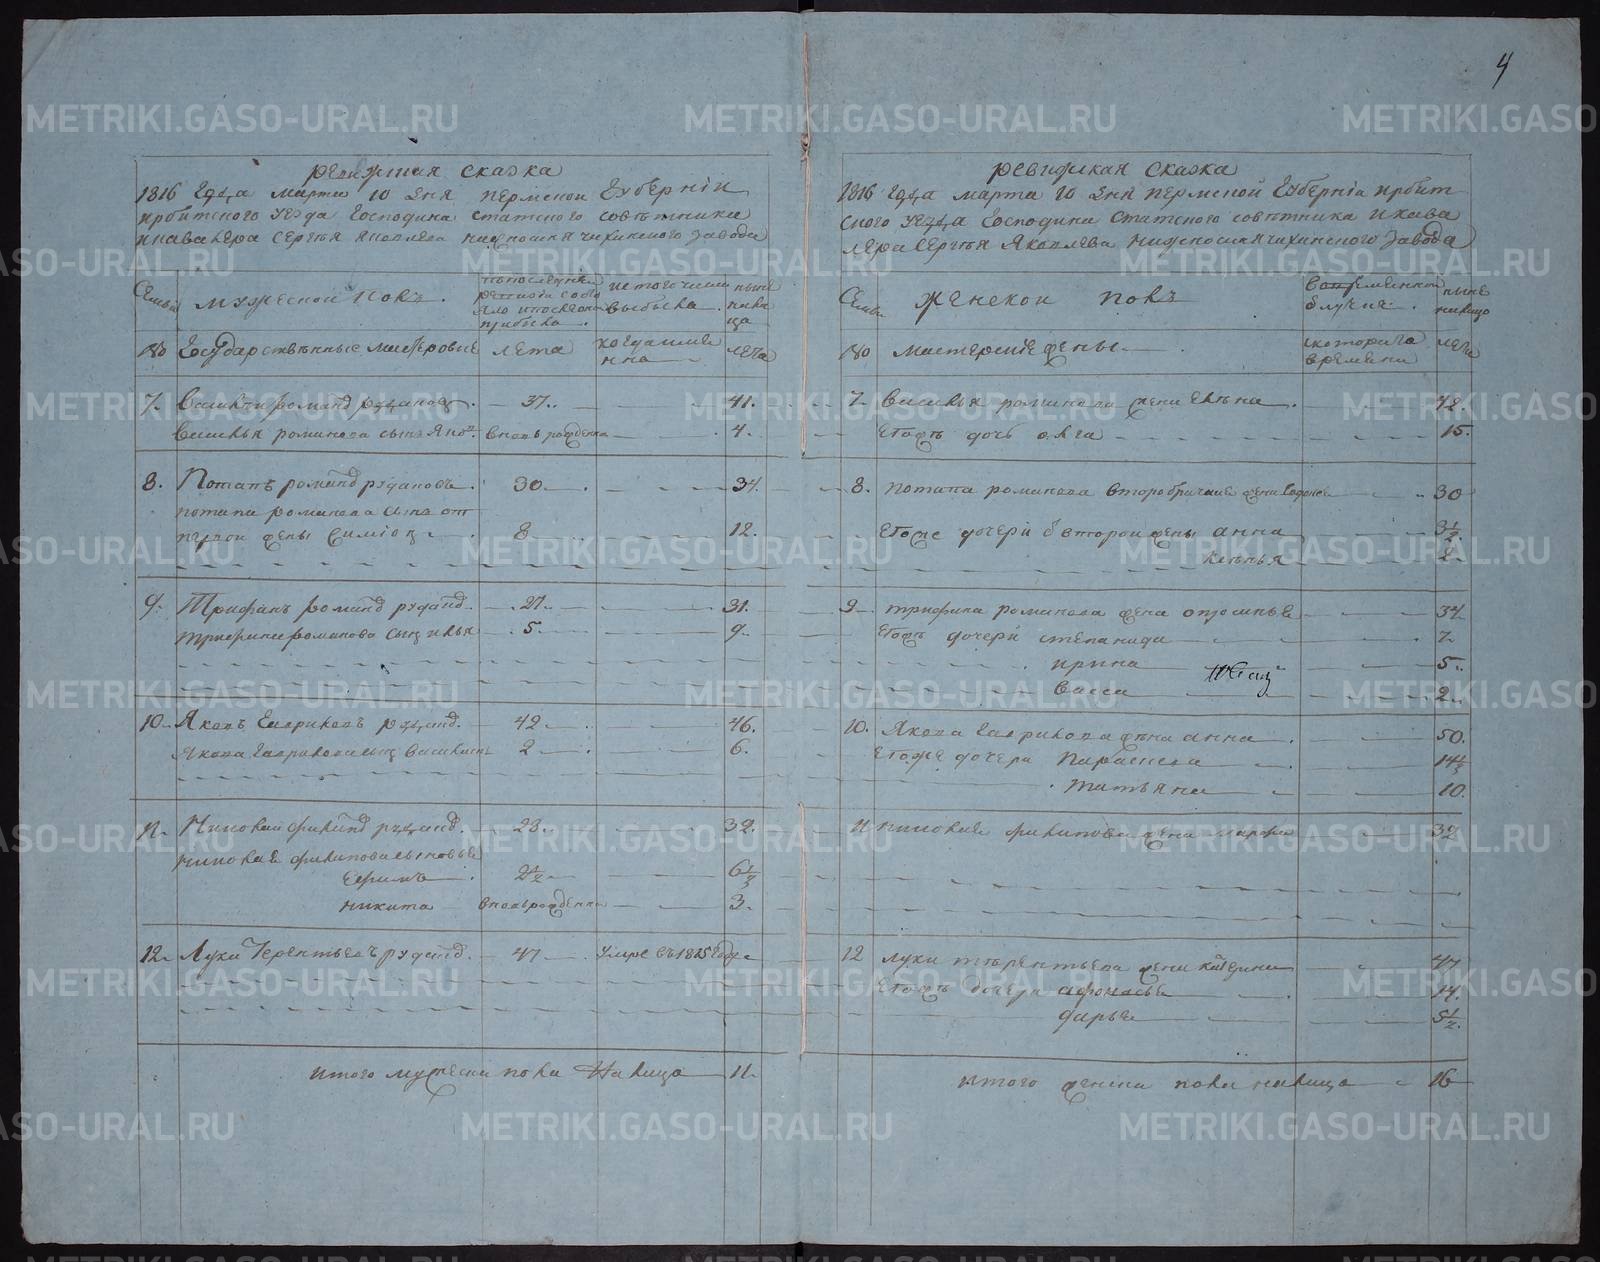 4
METRIKI.GASO-URAL.RU
Ревижская сказка
1816 года марта 10 дня пермской губернiи
ирбитского уезда господина статского советника
и кавалера сергея яковлева нижносинячихинского завода
Семьи
мужеской полъ
по последней ревизiи состояло и после оной прибыло
ис того числа выбыло
ныне налицо
№ Государствѣнные мастеровые
лета
когда имянно
лета
7. Василеи романов рудаковъ 37. 41.
василья романова сынъ яков вновь рожденна 4.
8. Потапъ романов рудаковъ 30 34.
потапа романова сынъ от
первои жены симион 8 12.
9. Трифанъ романов рудаков 27 31.
трифана романова сын илья 5. 9.
10. Яковъ Гавриловъ рудаков 42 46.
якова гаврилова сын василеи 2 6.
11. Николаи филипов рудаков. 28. 32.
николая филипова сыновья
Ефимъ 2½ 6½
никита вновь рожденна 3.
12. Лука Терентьевъ рудаков. 47 умре въ 1815 годе
итого мужеска пола налицо 11.
ревижская сказка
1816 года марта 10 дня пермской губернiи ирбит
ского уезда господина статского советника и кава
лера сергея яковлева нижносинячихинского завода
Семьи
женской полъ
во временной отлучке
ныне налицо
№ мастерские жены
с которого времени
лета
7. василья романова жена елена 42.
его же дочь олга 15.
8. потапа романова второбрачная жена 30
его же дочери от второи жены анна 3½
2
9. трифана романова жена 34
его же дочери степанида 7
ирина 5.
васса 2.
10. якова гаврилова жена анна 50.
его же дочери параскева 14½
татьяна 10.
11 николая филипова жена марфа 32
12 луки терентьева жена катерина 47
его же дочери афонасья 14.
дарья 5½
итого женска пола налицо 16